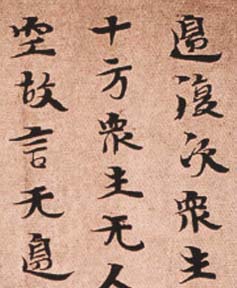 邊復次衆生
十方衆生无人
空故言无邊